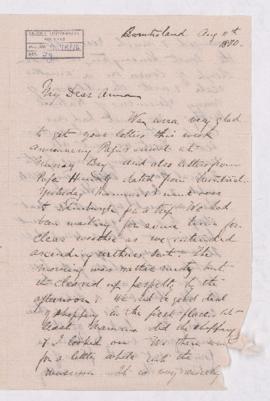 McGILL UNIVERSITY
ARCHIVES
ACC. NO.
REF.
Burntisland Aug 11th
1870.
My Dear Anna
We were very glad
to get your letters this week
announcing Papa's arrival at
Murray Bay and also letters from
Papa
Yesterday Mamma & I
to Edinburgh for a trip. We had
been waiting for some time for
clear weather as we intended
ascending Arthur's Seat. The
morning was rather misty but
it cleared up perfectly by the
afternoon. We had a good deal
of shopping in the first place at
least Mamma did the shopping
& I looked on. We then went
for a little while into the
museum. It is very nicely